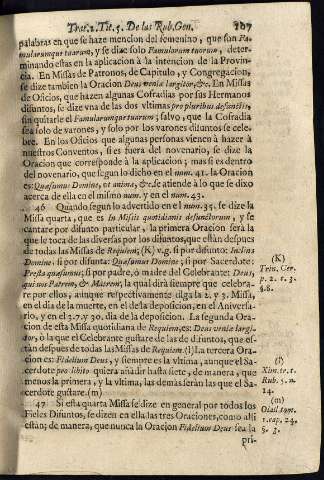 Trat. 2. Tit. 5. De las Rub. Gen. 107
palabras en que se haze mencion del femenino, que son Fa-
mularumque tuarum, y se dize solo Famularum tuorum, deter-
minando estas en la aplicación à la intencion de la Provin-
cia. En Missas de Patronos, de Capitulo, y Congregacion,
se dize tambien la Oracion Deus veniæ largitor, &c. En Missas
de Oficios, que hazen algunas Cofradias por sus Hermanos
difuntos, se dize vna de las dos vltimas pro pluribus defunctis,
sin quitarle el Famularumque tuarum; salvo, que la Cofradia
sea solo de varones, y solo por los varones difuntos se cele-
bre. En los Oficios que algunas personas vienen à hazer à
nuestros Conventos, si es fuera del novenario, se dize la
Oracion que corresponde à la aplicacion; mas si es dentro
del novenario, que segun lo dicho en el num. 41. la Oracion
es: Quæsumus Domine, vt anima, &c. se atiende à lo que se dixo
acerca de ella en el mismo num. y en el num. 43.
46 Quando segun lo advertido en el num. 35. se dize la
Missa quarta, que es In Missis quotidianis defunctorum, y se
cantare por difunto particular, la primera Oracion serà la
que le toca de las diversas por los difuntos, que estàn despues
de todas las Missas de Requiem; (K) v.g. si por difunto: Inclina
Domine; si por difunta: Quæsumus Domine; si por Sacerdote:
Præsta quæsumus; si por padre, ò madre del Celebrante: Deus,
qui nos Patrem, & Matrem, la qual dirà siempre que celebra-
re por ellos, aunque respectivamente diga la 2. y 3. Missa,
en el dia de la muerte, en el de la deposicion, en el Aniversa-
rio, y en el 3. 7. y 30. dia de la deposicion. La segunda Ora-
cion de esta Missa quotidiana de Requiem, es: Deus veniæ largi-
tor, ò la que el Celebrante gustare de las de difuntos, que es-
tàn despues de todas las Missas de Requiem. (l) La tercera Ora-
cion es: Fidelium Deus, y siempre es la vltima, aunque el Sa-
cerdote pro libito quiera añadir hasta siete, de manera, que
menos la primera, y la vltima, las demàs seràn las que el Sa-
cerdote gustare. (m)
47 Si esta quarta Missa se dize en general por todos los
Fieles Difuntos, se dizen en ella las tres Oraciones, como alli
estàn; de manera, que nunca la Oracion Fidelium Deus sea la
pri-
(K)
Tein. Cer.
p. 2. t. 3.
§. 8.
(l)
Xim. tr. 1.
Rub. 5. n.
14.
(m)
Olall. tom.
1. cap. 24.
§. 3.